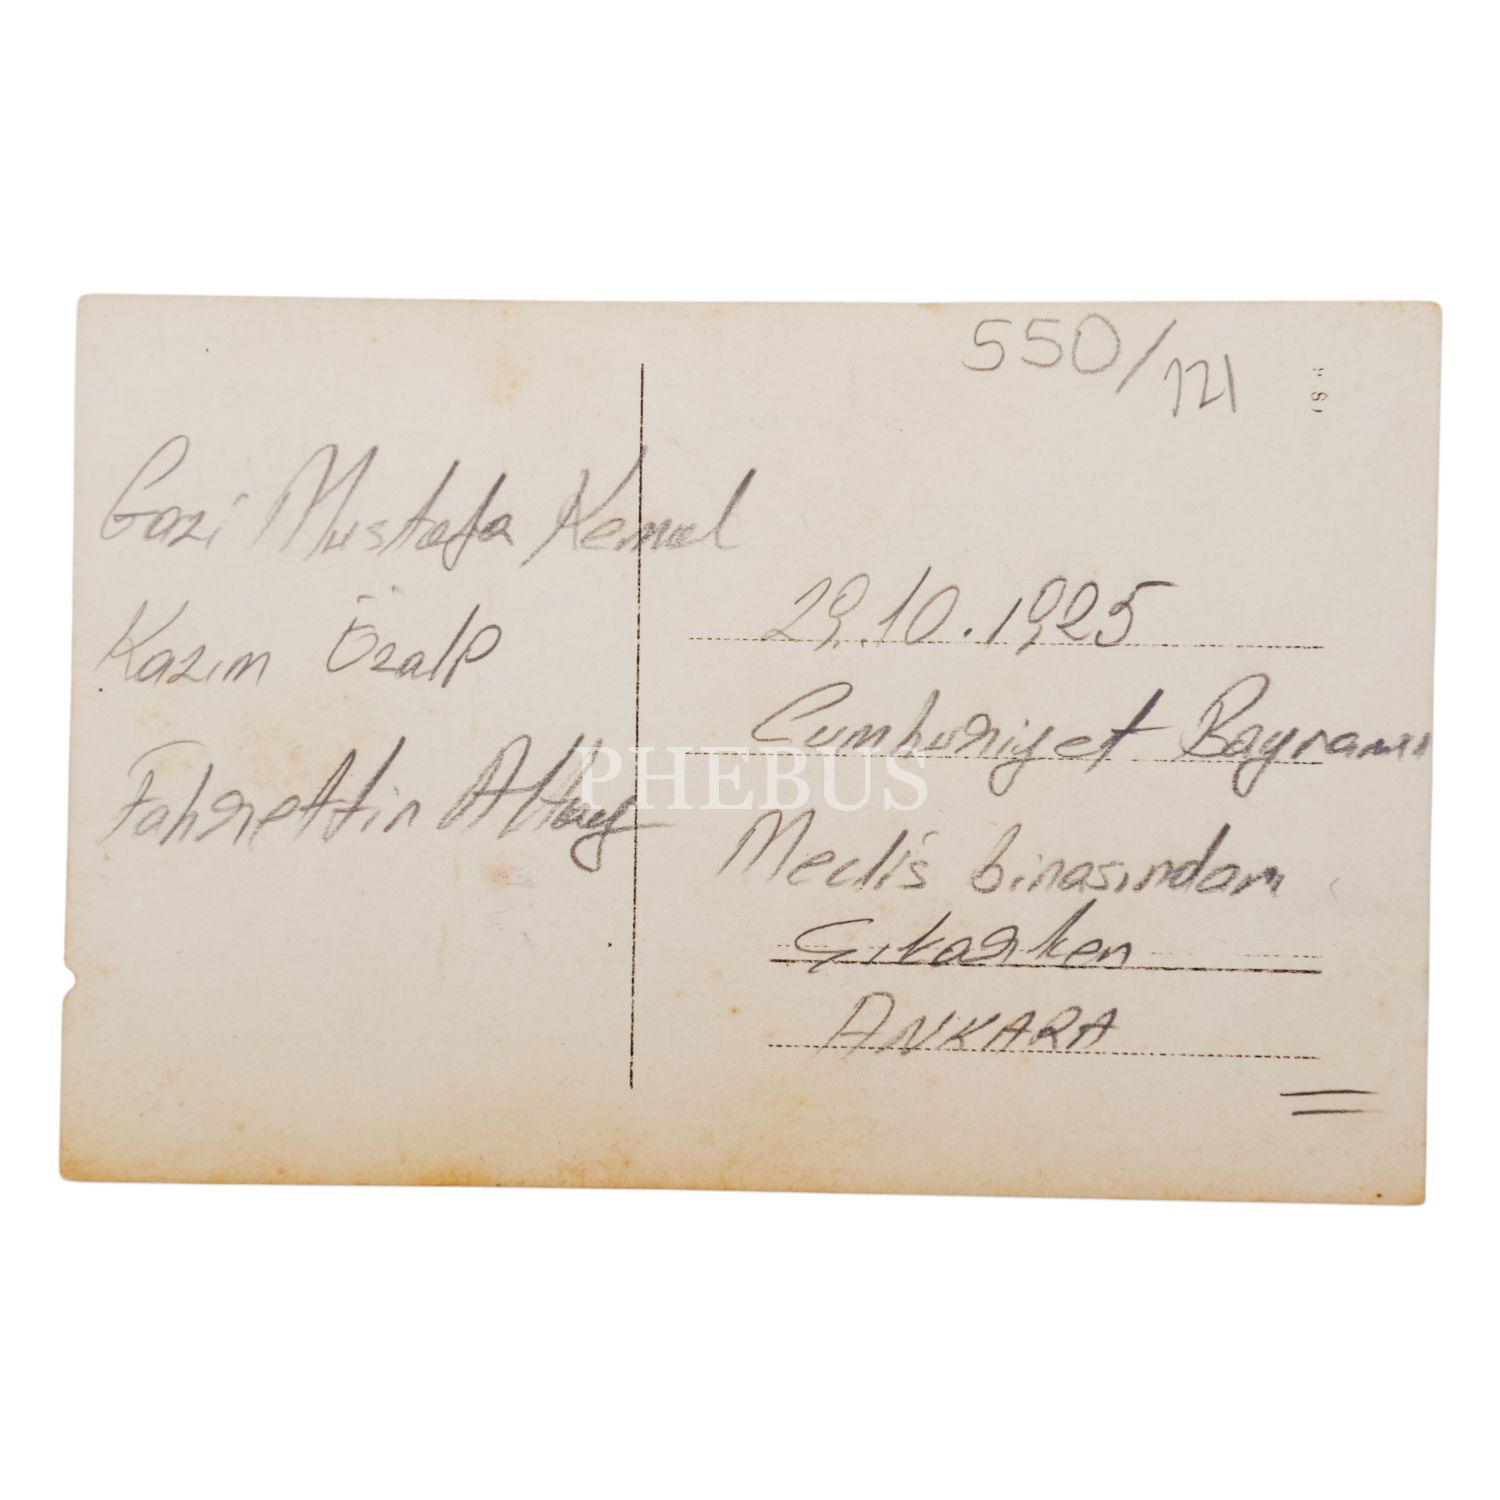 550/121
Gazi Mustafa Kemal
Kazım Özalp
Fahrettin Altay
29.10.1925
Cumhuriyet Bayramı
Meclis binasından
Çıkarken
ANKARA
PHEBUS